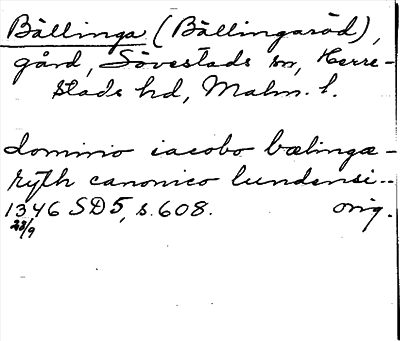 Bällinga (Bällingaröd),
gård, Sövestads sn, Herre-
stads hd, Malm. l.
domino iacobo bælingæ-
ryth canonico lundensi..
1346 SD5, s. 608. orig.
23/9